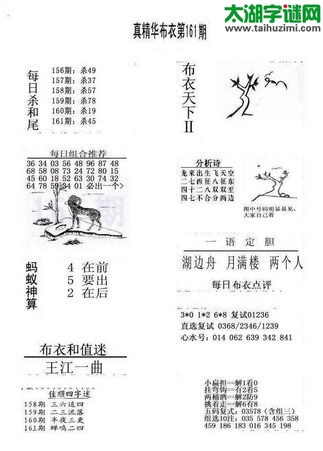 太湖字谜网
www.taihuzimi.com
真精华布衣第161期
每日杀和尾
156期：杀49
157期：杀37
158期：杀57
159期：杀78
160期：杀19
161期：杀45
布衣天下II
每日组合推荐
36 34 03 56 48 96 87 48
68 10 08 52 63 24 72 02
15 45 60 18 73 74 30 32
64 78 59 34 01 必出一个>
分析诗
龙来出生飞天空
二七西征八征东
四十二八双双至
四七不合分两边
图中号码明显易见，
大家自己看
蚂蚁神算
4 在 前
5 要 出
2 在 后
一语定胆
湖边舟 月满楼 两个人
每日布衣点评
3*0 1*2 6*8 复试01236
直选复试 0368/2346/1239
心水号：014 062 639 342 841
布衣和值迷
王江一曲
佳顺四字迷
158期 三六追四
159期 二三流落
160期 半夜三更
161期 蝉鸣二四
小扁担==解1看0
挂弯钩==有2看5
两桶酒==解2防9
挑着走==解6有8
五码复式：03578（含组三）
组选10注：035 578 456 358
459 186 183 016 345 198